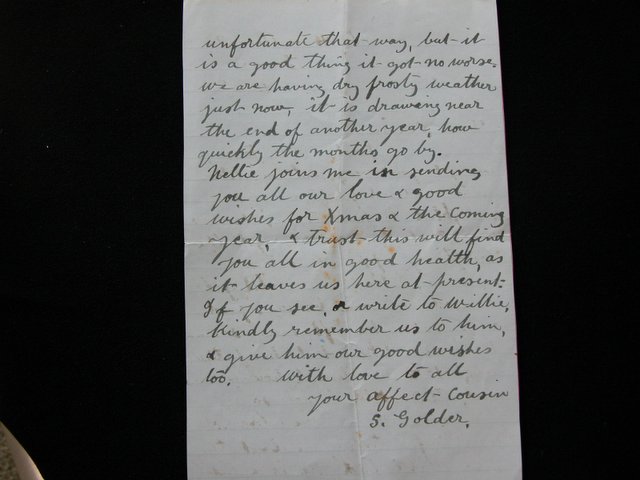 unfortunate that way, but it
is a good thing it got no worse.
we are having dry frosty weather
just now, it is drawing near
the end of another year, how
quickly the months go by.
Nellie joins me in sending
you all our love & good
wishes for Xmas & the coming
year, & trust this will find
you all in good health, as
it leaves us here at present.
If you see, or write to Willie,
kindly remember us to him,
& give him our good wishes
too. With love to all
your affect- Cousin
S. Golder.